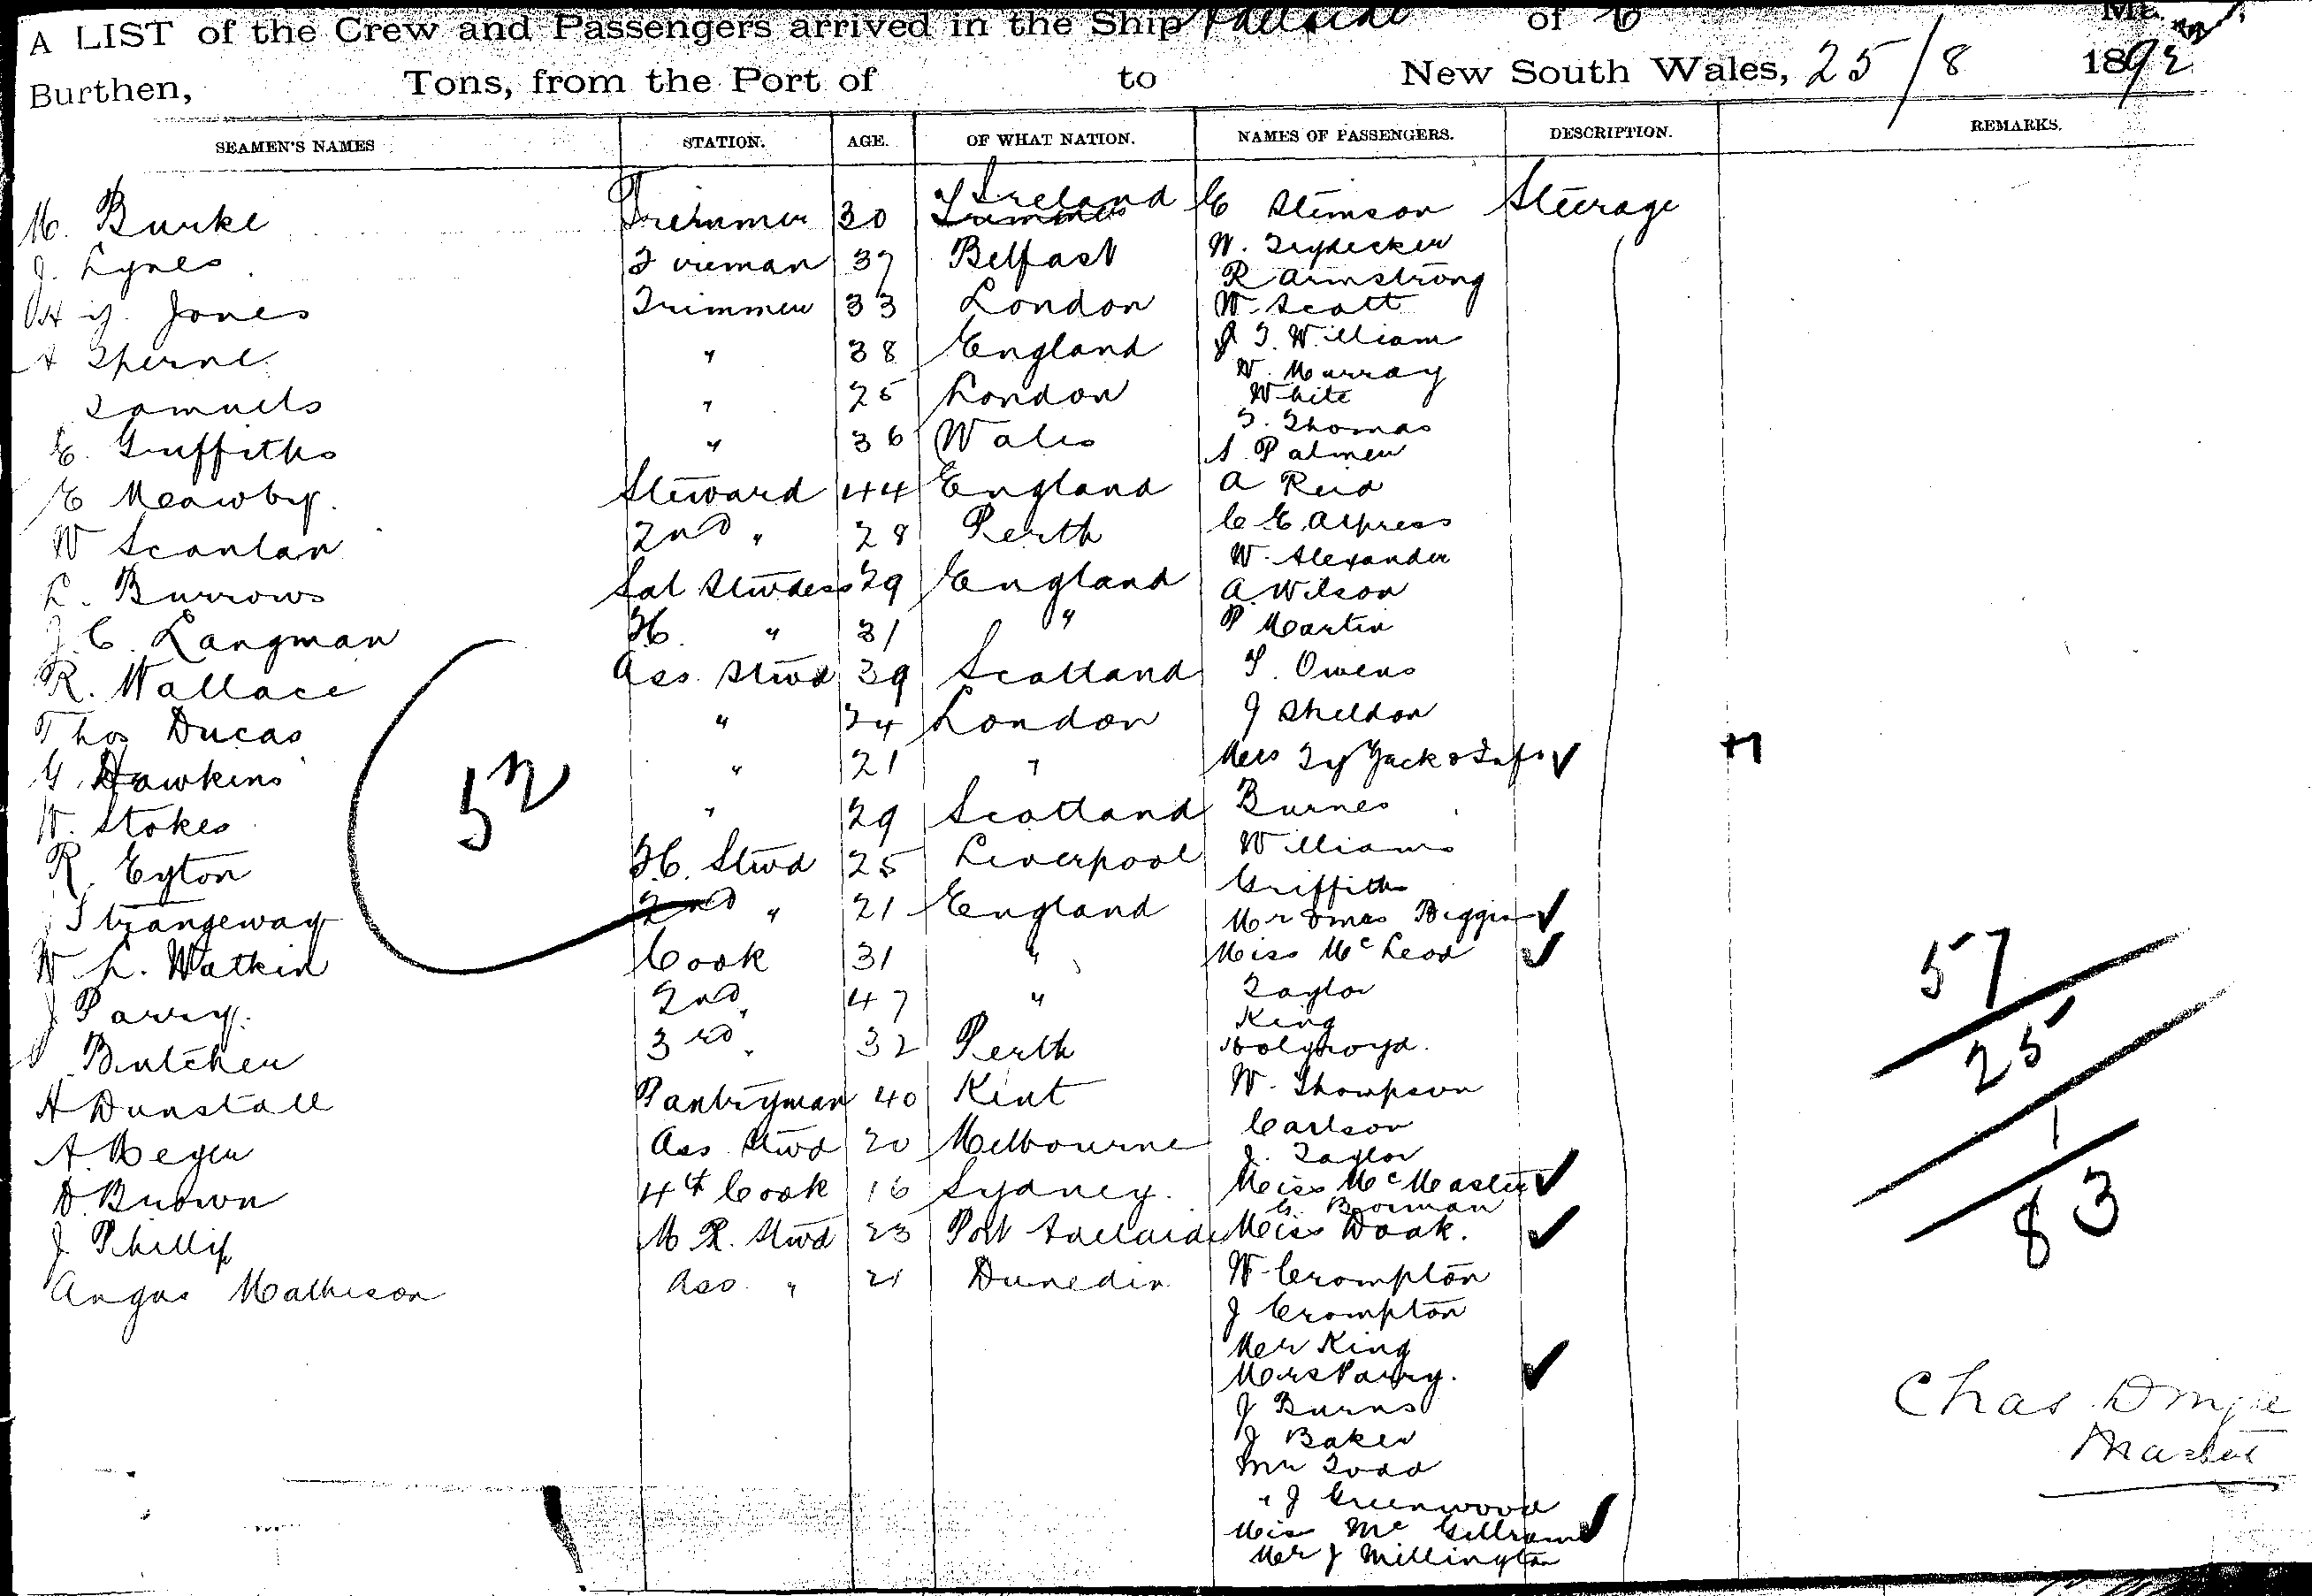 A LIST of the Crew and Passengers arrived in the Ship Adelaide of
Burthen, Tons, from the Port of to New South Wales, 25/8 1892
SEAMEN'S NAMES STATION. AGE. OF WHAT NATION. NAMES OF PASSENGERS. DESCRIPTION. REMARKS.
M. Burke Trimmer 30 Ireland E Stimson Steerage
J. Lynes Fireman 37 Belfast W. Trydecker
R Armstrong
Hy. Jones Trimmer 33 London W. Scott
A " 38 England J T. William
W. Murray
Samuels " 25 London White
T. Thomas
E. Griffiths " 36 Wales S. Palmer
E Meawby. Steward 44 England A Reid
W Scanlan 2nd " 28 Perth C E. Alpress
W. Alexander
L. Burrows Sal Stwdess 29 England A. Wilson
J. C. Langman F.C. " 31 " P Martin
R. Wallace Ass. Stwd 39 Scotland T. Owens
Thos Ducas " 24 London J Sheldon
G Hawkins " 21 " Mrs
W. Stokes " 29 Scotland Burnes
R. Eyton F.C. Stwd 25 Liverpool Williams
Griffiths
Strangeway 2nd " 21 England Mr & Mrs Biggin
W L. Watkin Cook 31 " Miss McLeod
J Parry. 2nd " 47 " Taylor
King
Butcher 3rd " 32 Perth Holyroyd.
H Dunstall Pantryman 40 Kent W. Thompson
A. Beyer Ass. Stwd 20 Melbourne Carlson
J. Taylor
D. Brown 4th Cook 16 Sydney. Miss McMaster
G. Borman
J. Phillip M. R. Stwd 23 Port Adelaide Miss Doak.
Angus Matheson Ass. " 21 Dunedin W. Crompton
J Crompton
Mr King
Mrs Parry.
J Burns
J Baker
Mr Todd
" J Greenwood
Miss Mc
Mr J Millington
52
57
25
1
83
Chas
Master